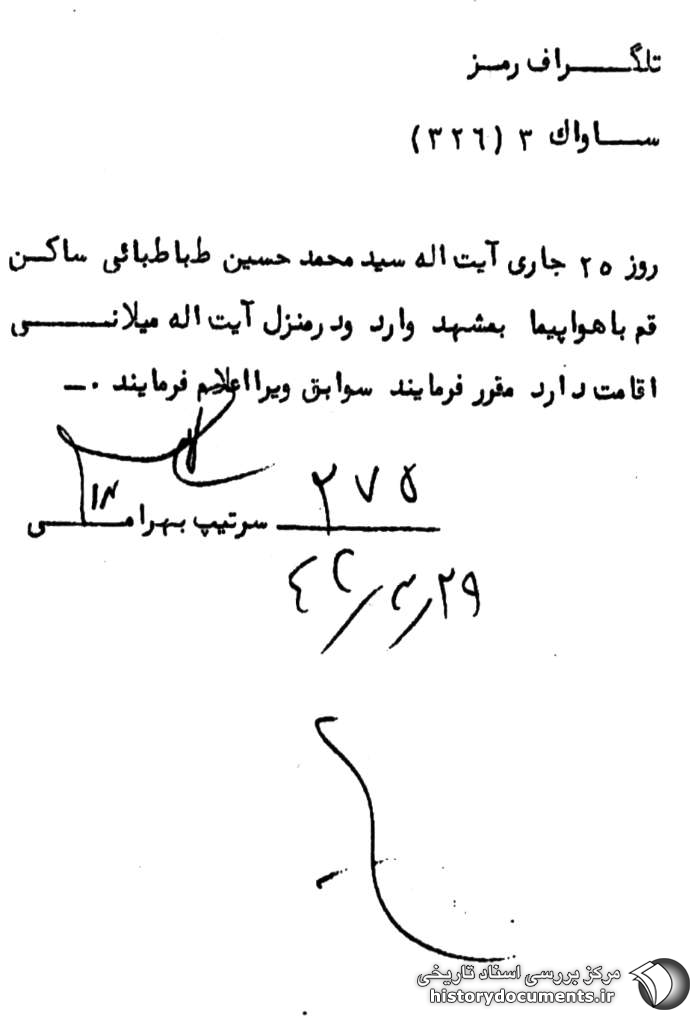 تلگراف رمز
ساواك ۳ (۳۲٦)
روز ۲۵ جاری آیت اله سید محمد حسین طباطبائی ساکن
قم با هواپیما بمشهد وارد ودرمنزل آیت اله میلانی
اقامت دارد مقرر فرمایند سوابق ویرا اعلام فرمایند .ـ
۲۷۵ سرتیپ بهرامی
مرکز بررسی اسناد تاریخی
historydocuments.ir